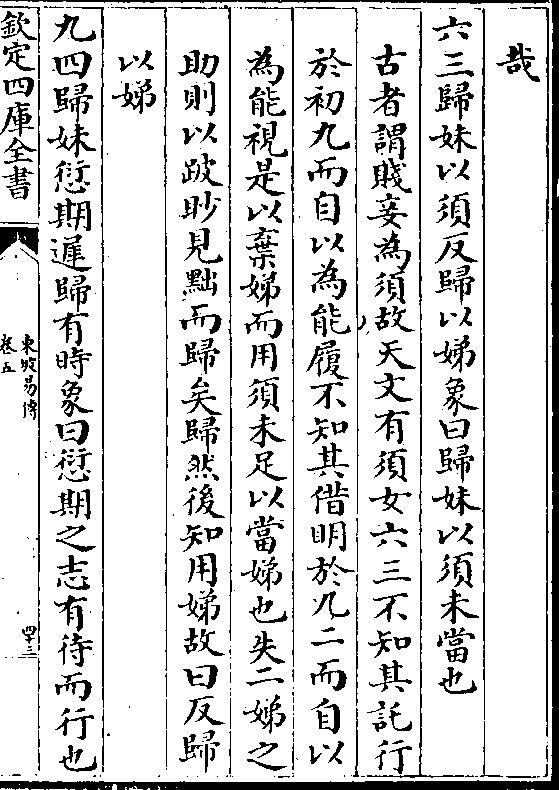 哉
六三歸妹以須反歸以娣象曰歸妹以須未當也
古者謂賤妾為須故天文有須女六三不知其託行
於初九而自以為能履不知其借明於九二而自以
為能視是以棄娣而用須未足以當娣也失二娣之
助則以跛眇見黜而歸矣歸然後知用娣故曰反歸
以娣
九四歸妹愆期遲歸有時象曰愆期之志有待而行也
欽定四庫全書
東坡易傳
卷五
四十三